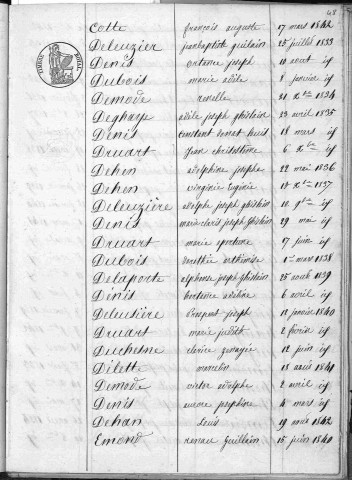 48
Cotte françois auguste 17 mars 1842
Deleuzier jeanbaptiste guilain 25 juillet 1833
Denis antoine joseph 10 aout id
Dubois marie adile 8 janvier id
Demode roselle 21 Xbre 1834
Deghasse adile joseph ghislain 23 avril 1835
Denis constant benoit 18 mars id
Druart jean chrisostome 6 Xbre id
Dehon adolphine josephe 22 mai 1836
Dehon virginie 1837
Deleuzière adolphe joseph ghislain 10 id
Denis marie joseph ghislain 29 mai id
Druart marie 17 juin id
Dubois 1er mars 1838
Delaporte alphonse joseph ghislain 25 aout 1839
Dénis hortence adeline 6 avril id
Deleusière joseph 12 janvier 1840
Druart marie judith 2 fevrier id
Duchesne 12 juin id
Dilette marcelin 15 aout 1841
Demode victor adolphe 2 avril id
Denis aurore josephine 4 mars id
Dehan Louis 19 1842
Emond guillain 15 juin 1840